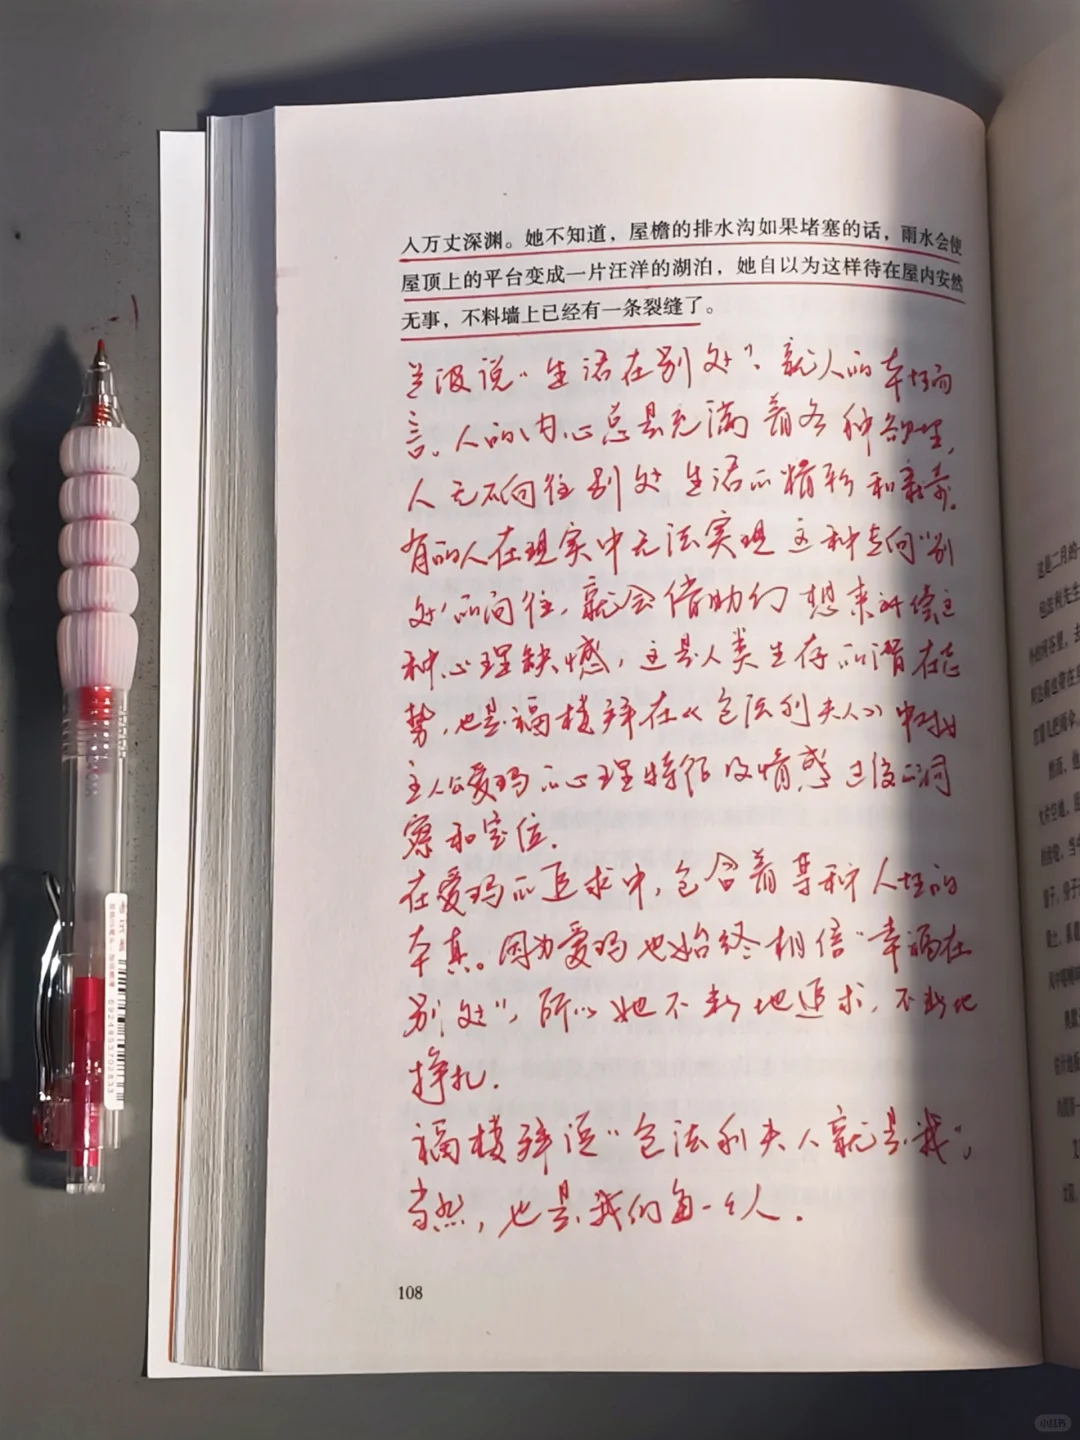 人万丈深渊。她不知道，屋檐的排水沟如果堵塞的话，雨水会使
屋顶上的平台变成一片汪洋的湖泊，她自以为这样待在屋内安然
无事，不料墙上已经有一条裂缝了。
兰波说“生活在别处”，就人的本性而
言。人的内心总是充满着各种欲望，
人无不向往别处生活的精彩和新奇。
有的人在现实中无法实现这种走向“别
处”的向往，就会借助幻想来补偿这
种心理缺憾，这是人类生存的潜在态
势，也是福楼拜在《包法利夫人》中对女
主人公爱玛的心理特征及情感过复的洞
察和定位.
在爱玛的追求中，包含着某种人性的
本真。因为爱玛也始终相信“幸福在
别处”，所以她不断地追求，不断地
挣扎.
福楼拜说“包法利夫人就是我”，
当然，也是我们每一个人.
108
这是二月的
包法利先生
小红书